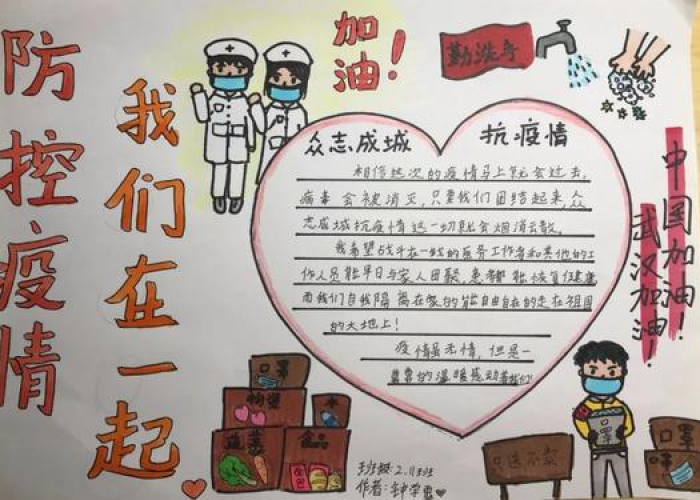 防控疫情
我们在一起
加油！
勤洗手
众志成城 抗疫情
相信这次的疫情马上就会过去，
病毒会被消灭，只要我们团结起来，众
志成城抗疫情这一切就会烟消云散。
我希望战斗在一线的医务工作者和其他的工
作人员能早日与家人团聚，患者都能恢复健康
而我们自我隔离在家的能自由自在的走在祖国
的大地上！
疫情虽无情，但是一
幕幕的温暖感动着我们！
中国加油！
武汉加油！
口罩
物资
蔬菜
食品
口罩
口罩
口罩
班级：2.
作者：